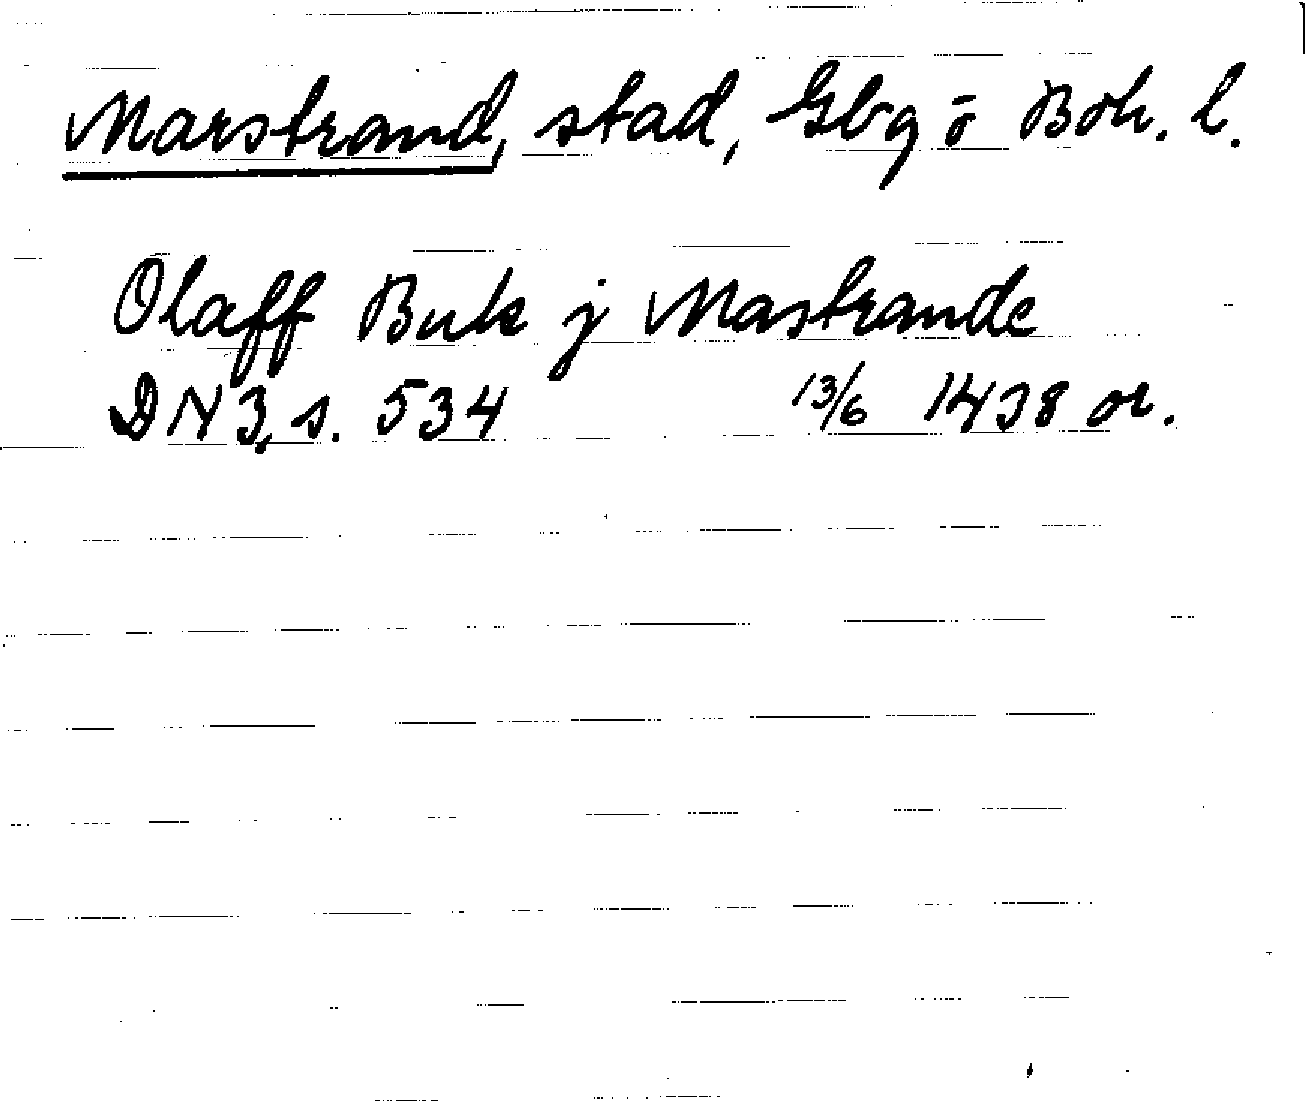 Marstrand, stad, Gbg ō Boh. l.
Olaff Buk j Mastrande
DN 3, s. 534 13/6 1438 or.